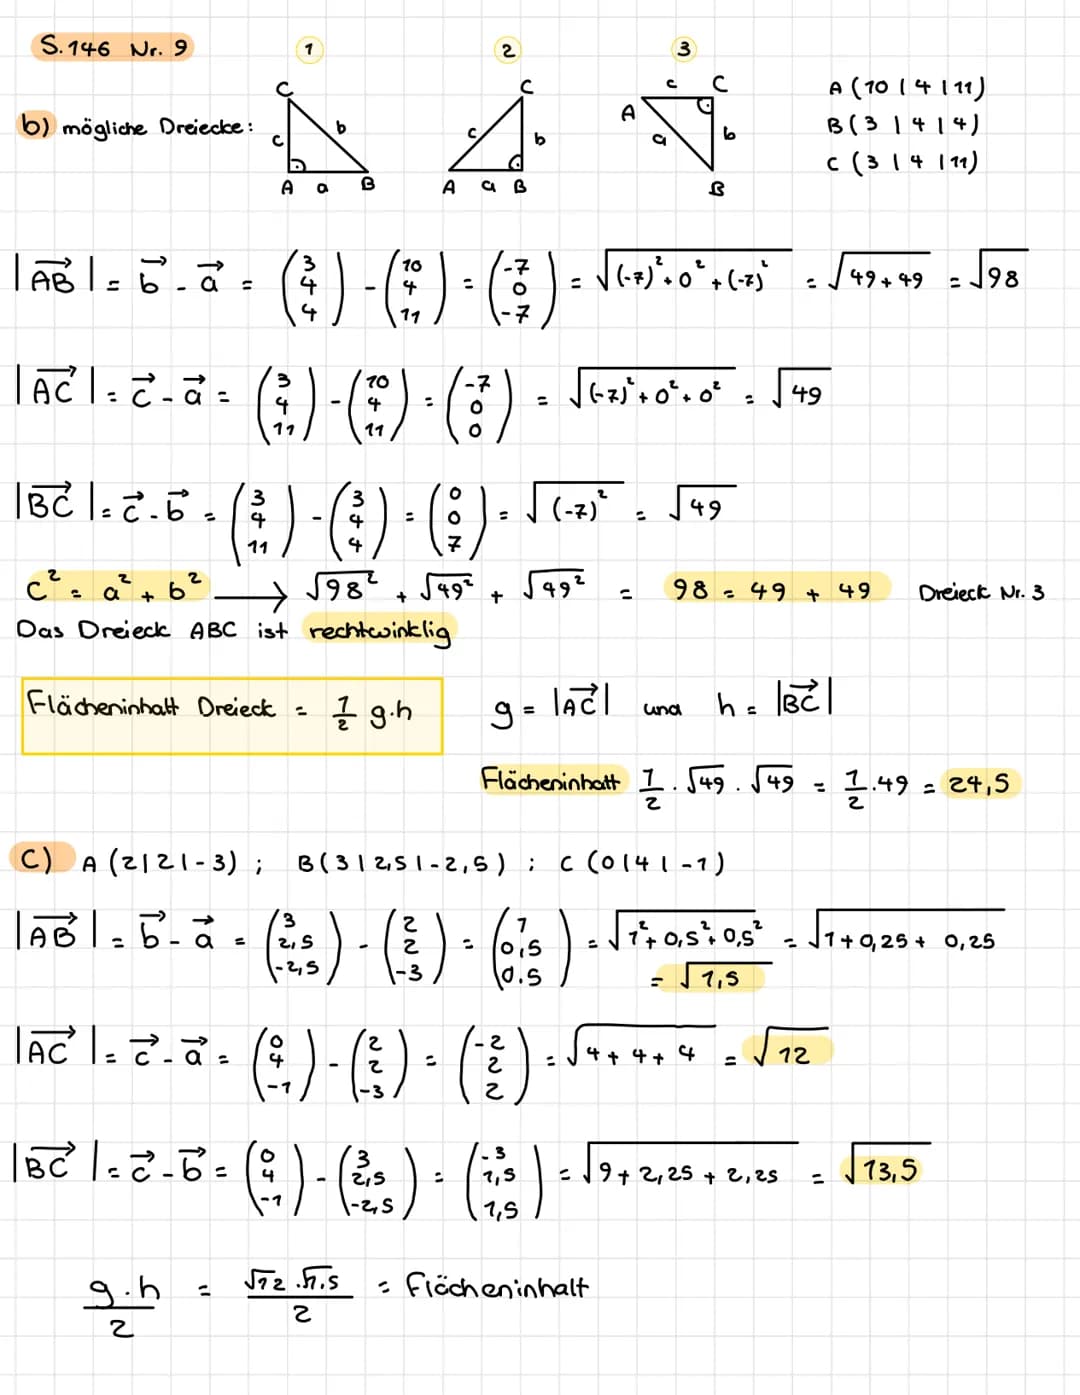 S. 146 Nr. 9
1 2 3
b) mögliche Dreiecke:
C c b A a B
C c b A a B
c C A a b B
A (10 | 4 | 11)
B (3 | 4 | 4)
C (3 | 4 | 11)
|AB→| = b→ - a→ = (3 4 4) - (10 4 11) = (-7 0 -7) = √((-7)² + 0² + (-7)²) = √(49 + 49) = √98
|AC→| = c→ - a→ = (3 4 11) - (10 4 11) = (-7 0 0) = √((-7)² + 0² + 0²) = √49
|BC→| = c→ - b→ = (3 4 11) - (3 4 4) = (0 0 7) = √((-7)²) = √49
c² = a² + b² ⟶ √98² + √49² + √49² = 98 = 49 + 49 Dreieck Nr. 3
Das Dreieck ABC ist rechtwinklig
Flächeninhalt Dreieck = 1/2 g·h g = |AC→| und h = |BC→|
Flächeninhalt 1/2 · √49 · √49 = 1/2 · 49 = 24,5
C) A (2|2|-3) ; B (3|2,5|-2,5) ; C (0|4|-1)
|AB→| = b→ - a→ = (3 2,5 -2,5) - (2 2 -3) = (1 0,5 0.5) = √(1² + 0,5² + 0,5²) = √(1 + 0,25 + 0,25)
= √1,5
|AC→| = c→ - a→ = (0 4 -1) - (2 2 -3) = (-2 2 2) = √(4 + 4 + 4) = √12
|BC→| = c→ - b→ = (0 4 -1) - (3 2,5 -2,5) = (-3 1,5 1,5) = √(9 + 2,25 + 2,25) = √13,5
g·h/2 = √12 · √1,5/2 = Flächeninhalt